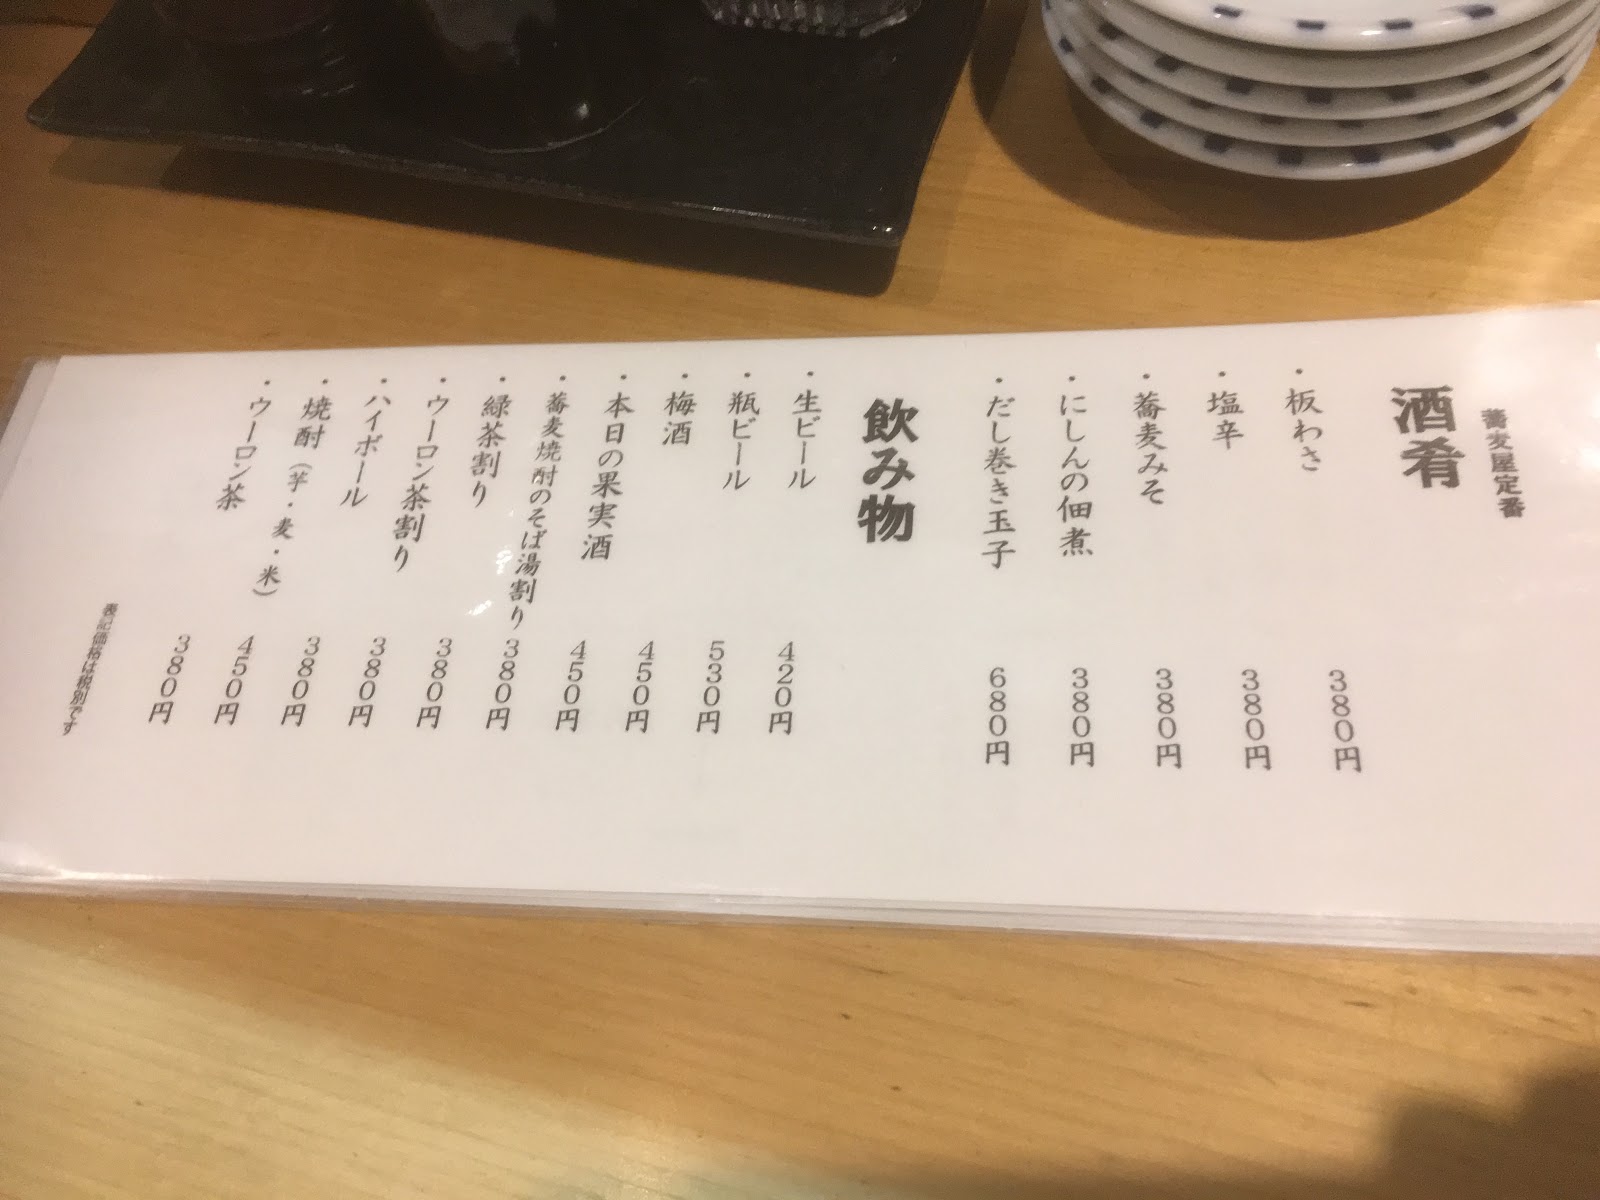 蕎麦屋定番
酒肴
・板わさ 380円
・塩辛 380円
・蕎麦みそ 380円
・にしんの佃煮 380円
・だし巻き玉子 680円
飲み物
・生ビール 420円
・瓶ビール 530円
・梅酒 450円
・本日の果実酒 450円
・蕎麦焼酎のそば湯割り 380円
・緑茶割り 380円
・ウーロン茶割り 380円
・ハイボール 380円
・焼酎（芋・麦・米） 450円
・ウーロン茶 380円
表記価格は税別です